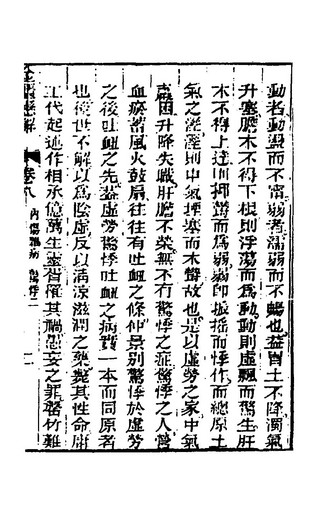 動者動盪而不寧弱者濡弱而不暢也蓋胃土不降濁氣
升塞膽木不得下根則浮蕩而為動動則虛飄而驚生肝
木不得上達則抑鬱而為弱弱即振搖而悸作而總原土
氣之溼溼則中氣堙塞而木鬱故也是以虛勞之家中氣
困升降失職肝膽不榮無不有驚悸之症驚悸之人營
血瘀蓄風火鼓扇往往有吐衄之條仲景別驚悸於虛勞
之後吐衄之先蓋虛勞驚悸吐衄之病實一本而同原者
也後世不解以為陰虛反以清涼滋潤之藥斃其性命庸
工代起述作相承億萬生靈皆罹其禍愚妄之罪罄竹難
金匱懸解
卷八
內傷雜病